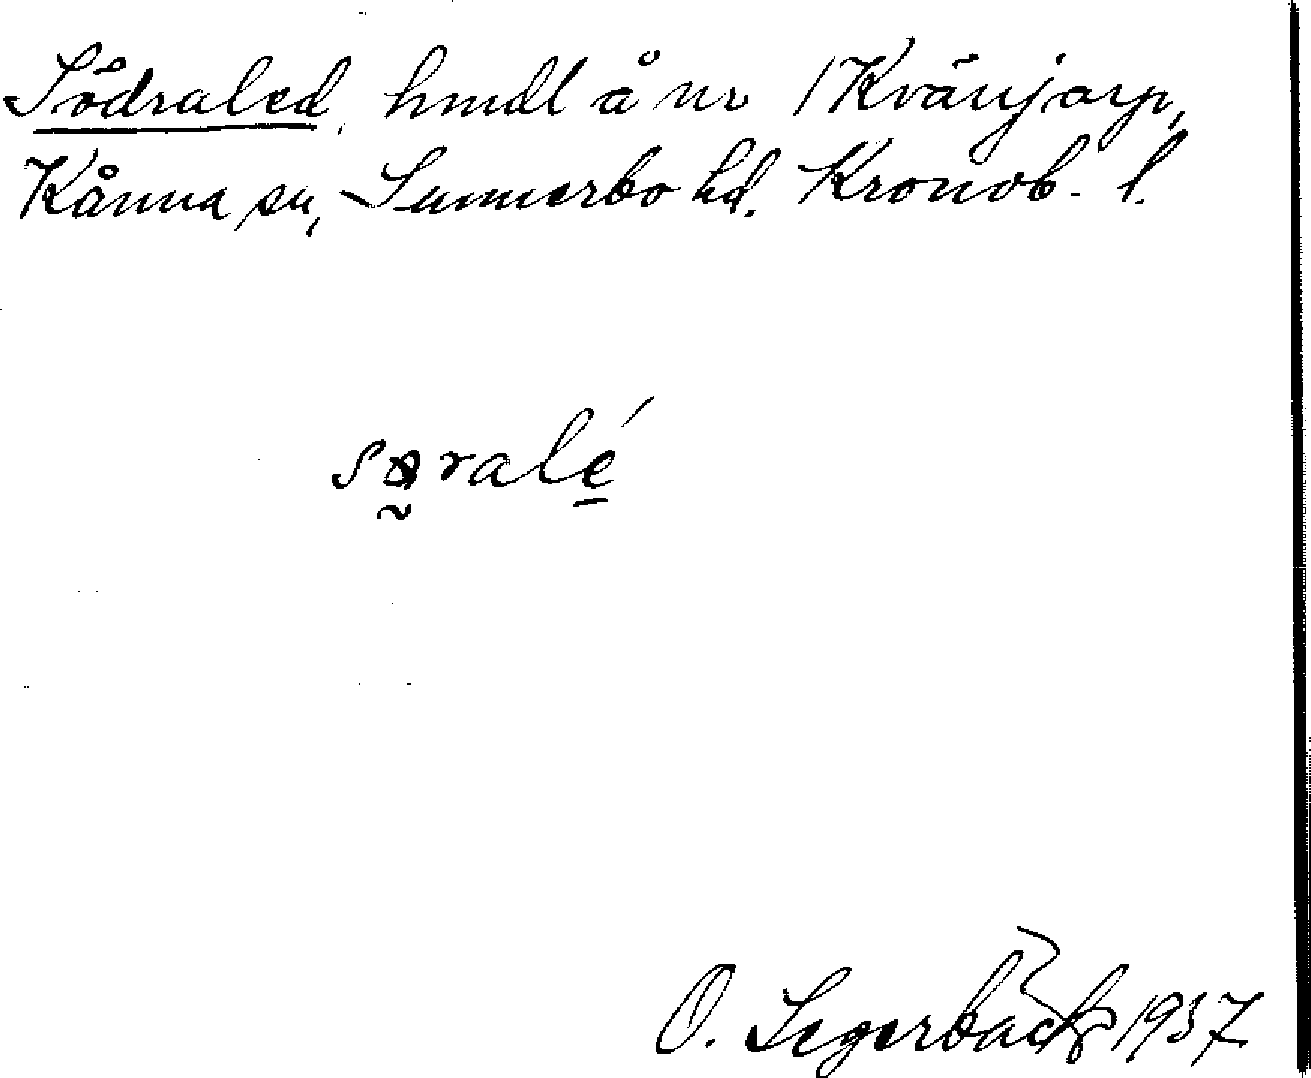 Södraled, hmdl å nr 1 Kvänjarp,
Kånna sn, Sunnerbo hd. Kronob. l.
søralé
O. Segerbäck 1937